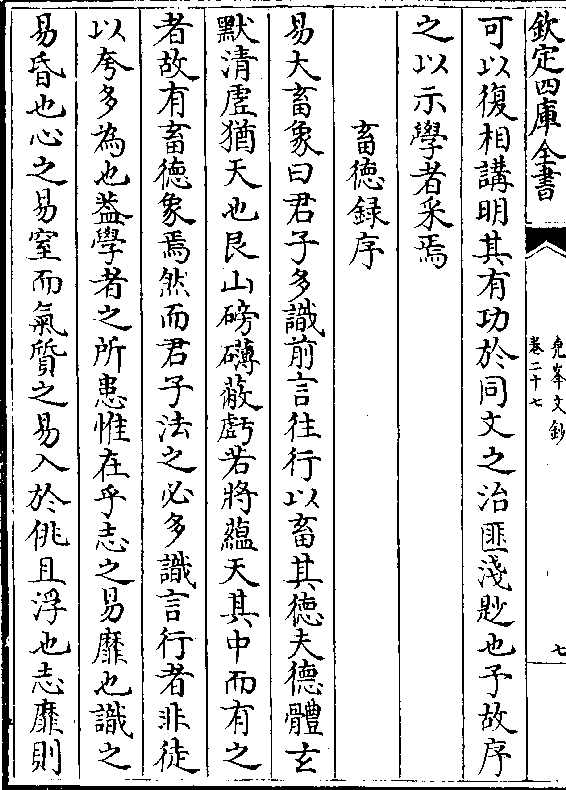 欽定四庫全書
堯峯文鈔
卷二十七
七
可以復相講明其有功於同文之治匪淺尟也予故序
之以示學者采焉
畜徳録序
易大畜象曰君子多識前言往行以畜其徳夫德體玄
默清虛猶天也艮山磅礴蔽虧若將蘊天其中而有之
者故有畜徳象焉然而君子法之必多識言行者非徒
以夸多為也葢學者之所患惟在乎志之易靡也識之
易昏也心之易窒而氣質之易入於佻且浮也志靡則